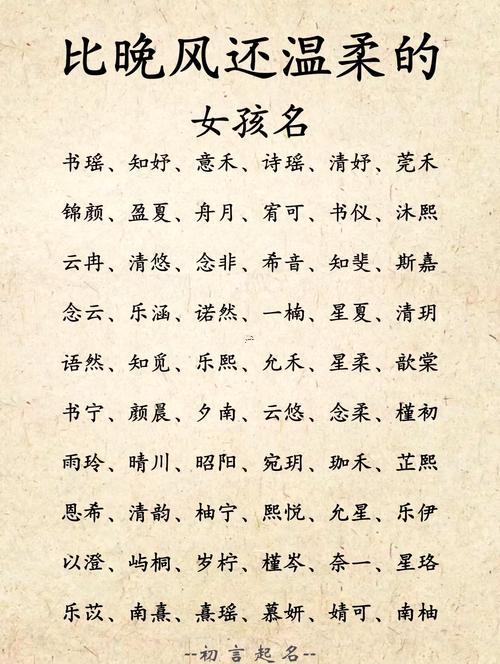 比晚风还温柔的
女孩名
书瑶、知妤、意禾、诗瑶、清妤、莞禾
锦颜、盈夏、舟月、宥可、书仪、沐熙
云冉、清悠、念非、希音、知斐、斯嘉
念云、乐涵、诺然、一楠、星夏、清玥
语然、知觅、乐熙、允禾、星柔、歆棠
书宁、颜晨、夕南、云悠、念柔、槿初
雨玲、晴川、昭阳、宛玥、珈禾、芷熙
恩希、清韵、柚宁、熙悦、允星、乐伊
以澄、屿桐、岁柠、槿岑、奈一、星珞
乐苡、南熹、熹瑶、慕妍、婧可、南柚
--初言起名--